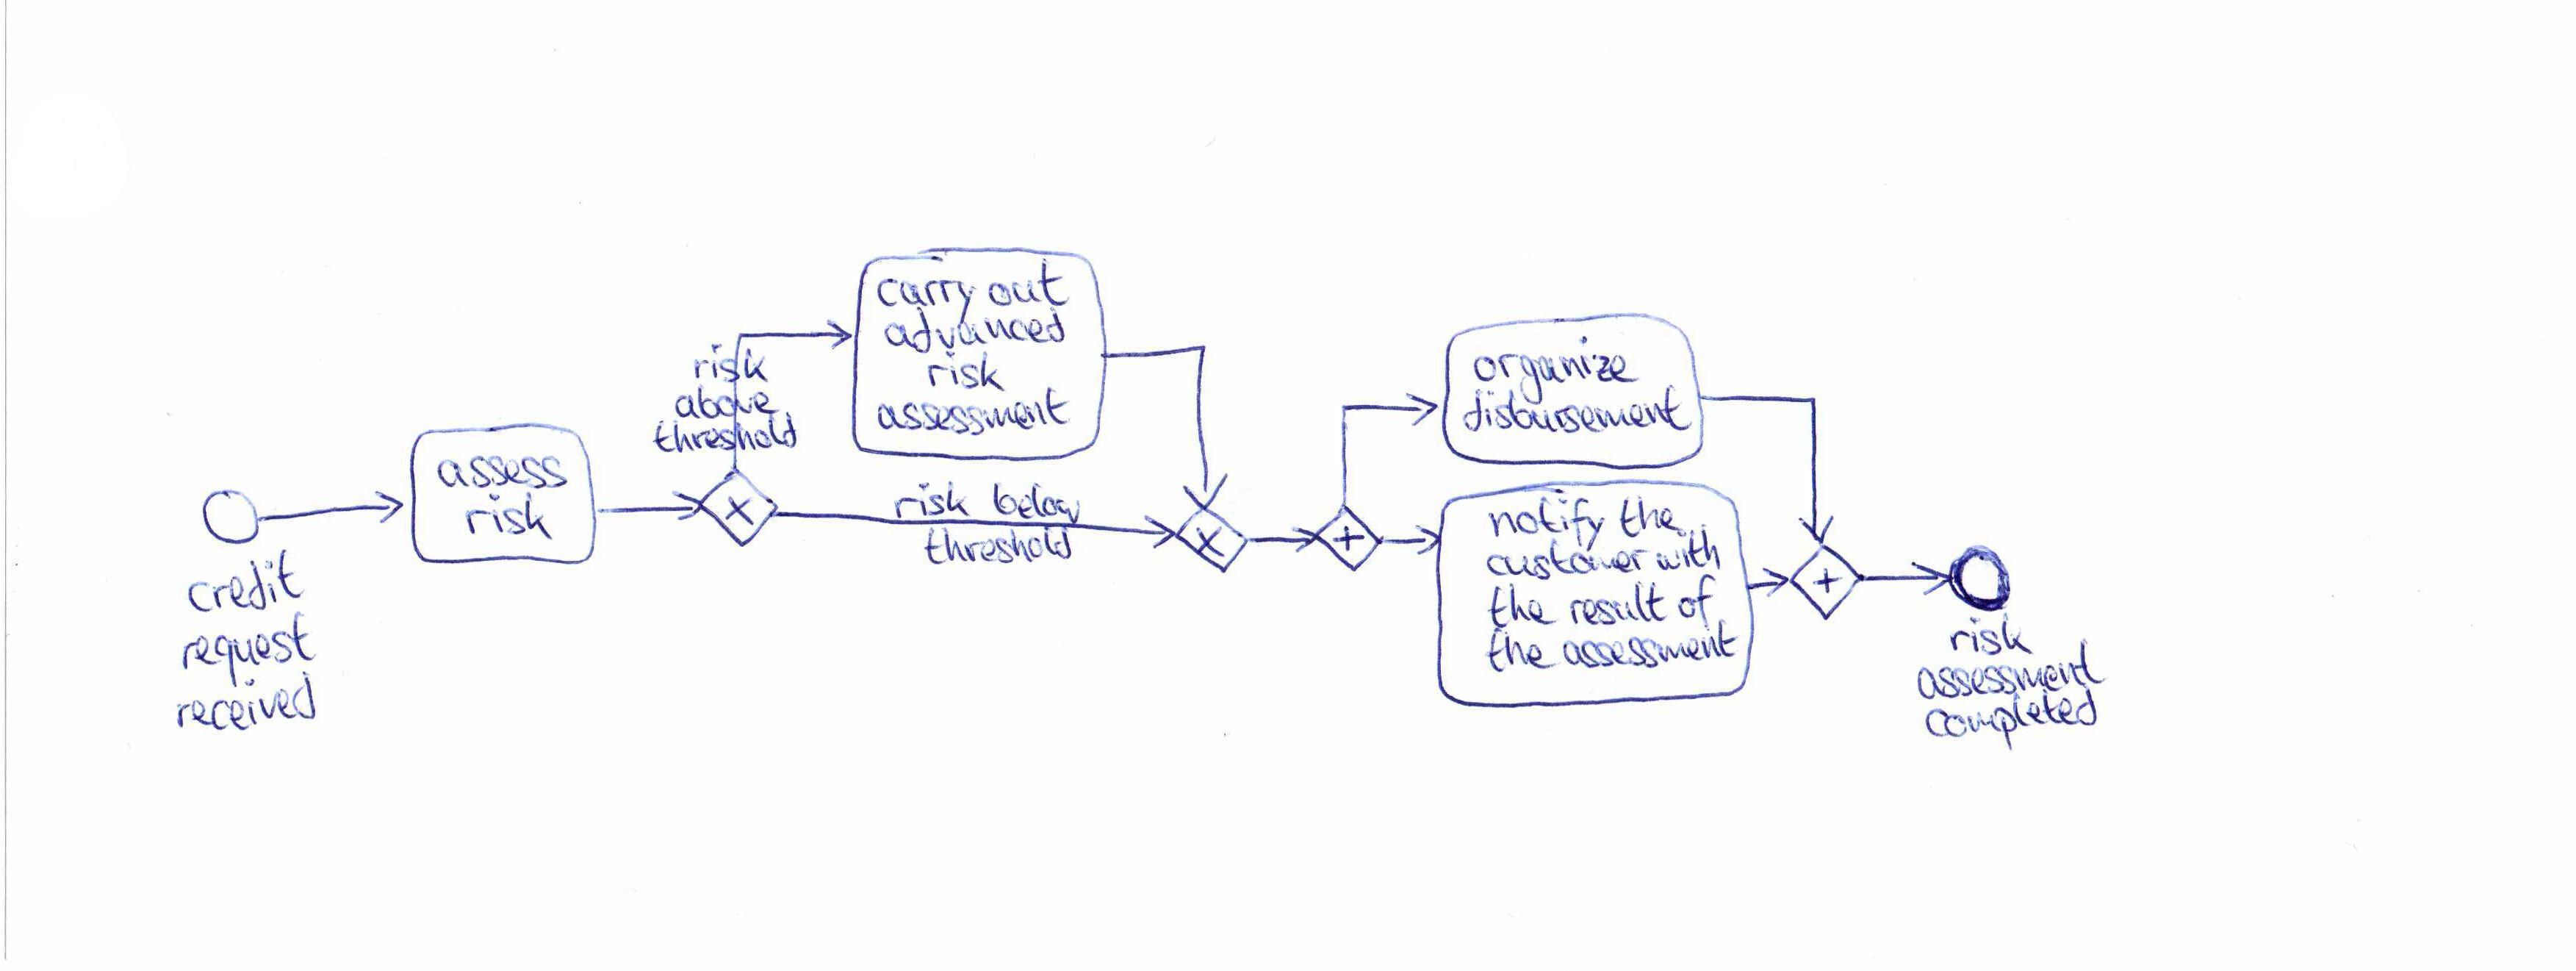 credit
request
received
assess
risk
risk
above
threshold
carry out
advanced
risk
assessment
risk below
threshold
organize
disbursement
notify the
customer with
the result of
the assessment
risk
assessment
completed